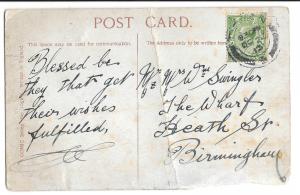 POST CARD.
This space may be used for communication.
The address only to be written here
Blessed be
they that get
their wishes
fulfilled.
Mr & Mrs Wm Swingler
The Wharf
Heath St
Birmingham